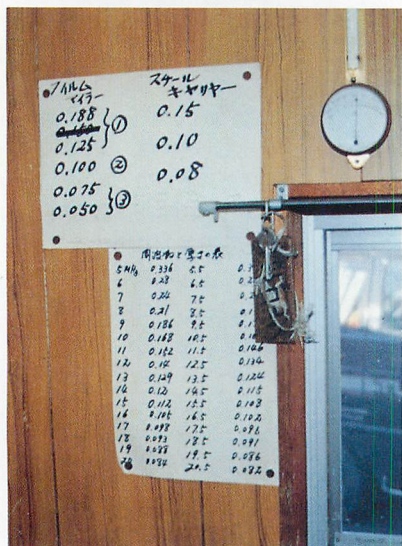 フィルム スチール
マイラー キャリヤー
0.188 0.15
0.150
0.125 ① 0.10
0.100 ② 0.08
0.075
0.050 ③
周波数と厚さの表
5MHz 0.336 5.5
6 0.28 6.5
7 0.24 7.5
8 0.21 8.5
9 0.186 9.5
10 0.168 10.5
11 0.152 11.5 0.146
12 0.14 12.5 0.134
13 0.129 13.5 0.124
14 0.12 14.5 0.115
15 0.112 15.5 0.108
16 0.105 16.5 0.102
17 0.098 17.5 0.096
18 0.093 18.5 0.091
19 0.088 19.5 0.086
20 0.084 20.5 0.082